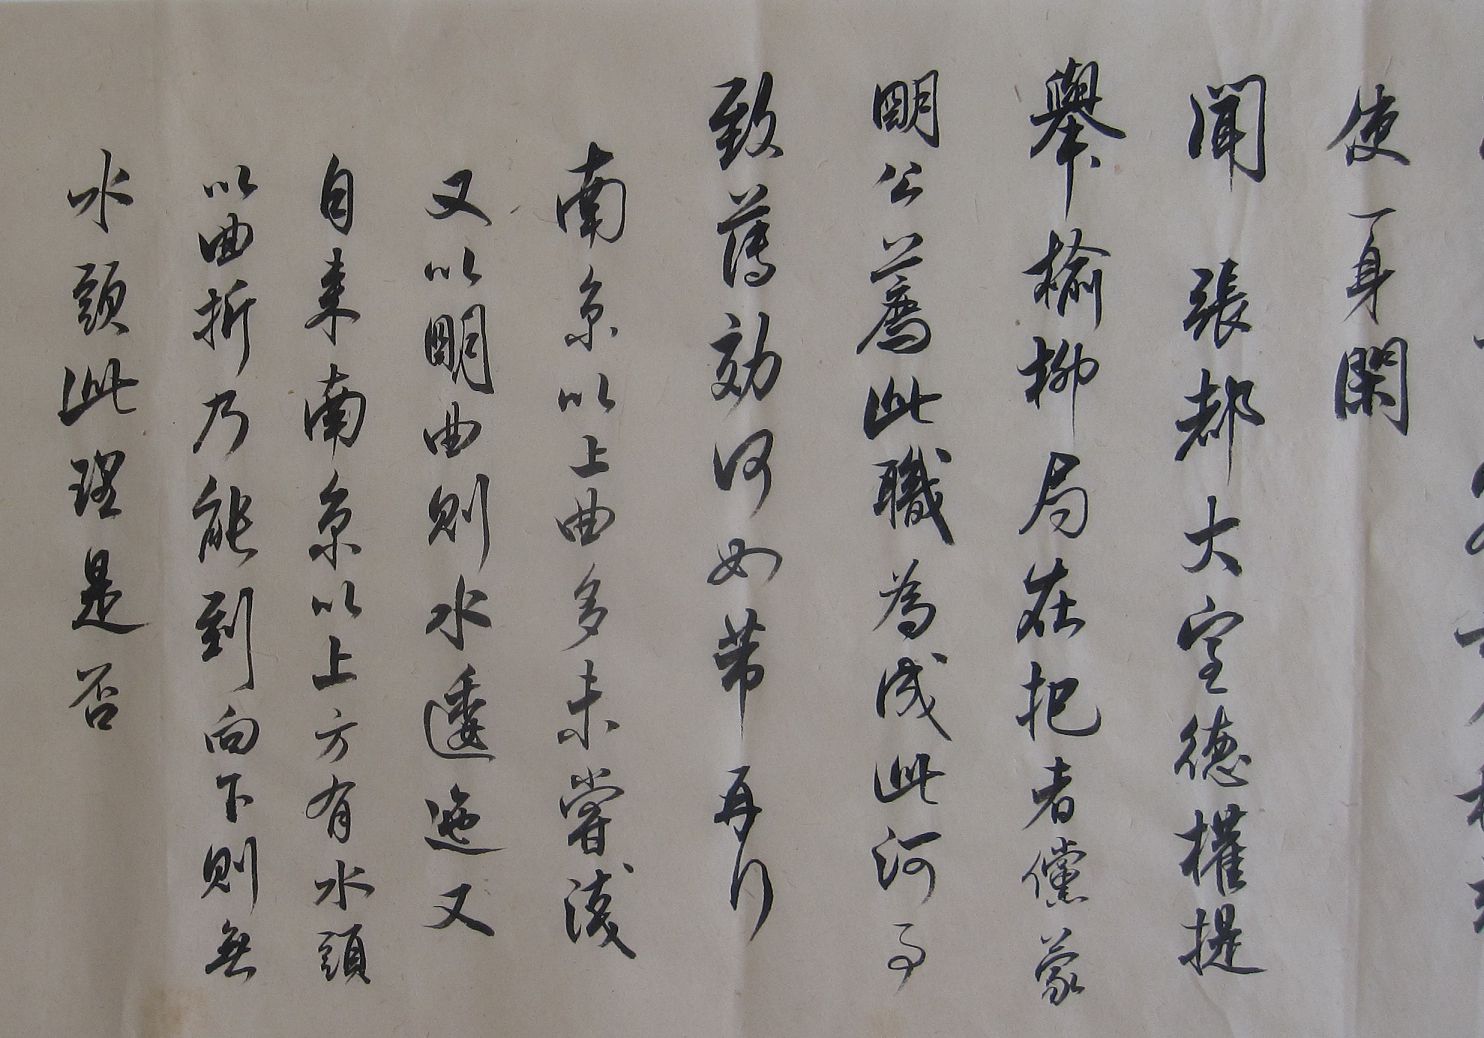 使一身閑
聞 張都大宣德權提
舉榆柳局在把者儻蒙
明公薦此職為成此河事
致薄効何如芾再行
南京以上曲多未嘗淺
又以明曲則水逶迤又
自来南京以上方有水頭
以曲折乃能到向下則無
水頭此理是否